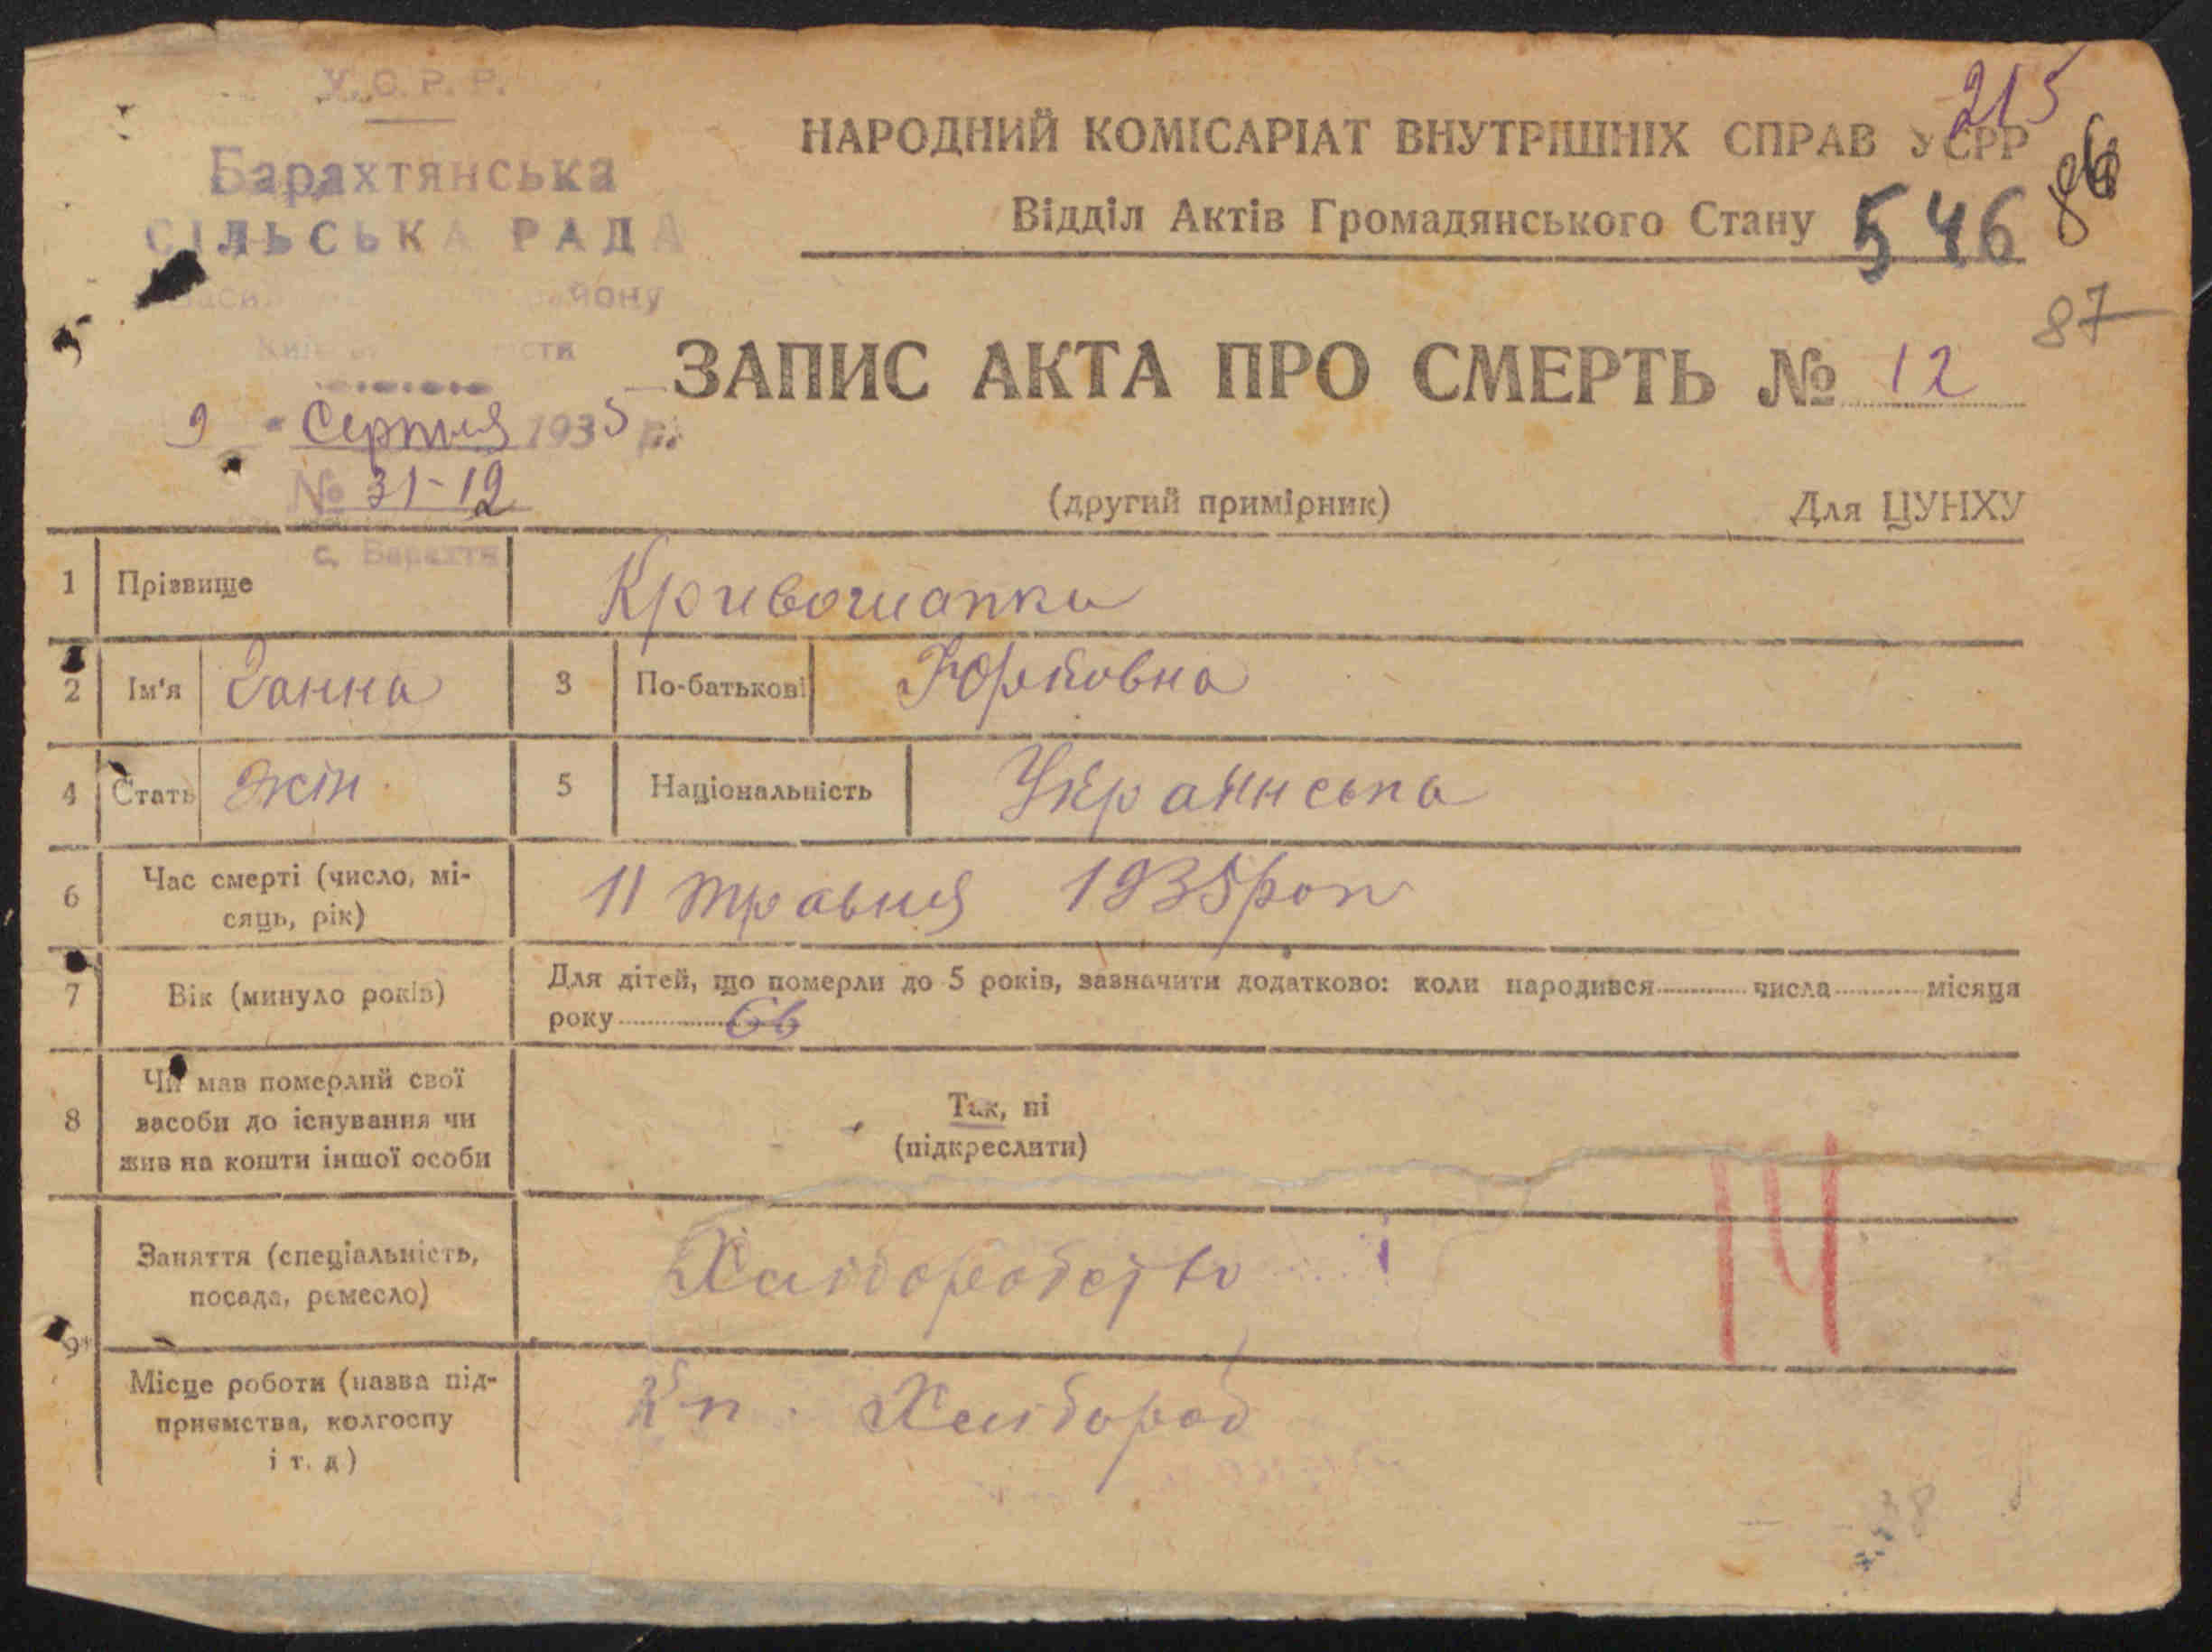 У.С.Р.Р.
Барахтянська
СІЛЬСЬКА РАДА
району
9 Серпня 1935 р.
№ 31-12
с. Барахти
215
НАРОДНИЙ КОМІСАРІАТ ВНУТРІШНІХ СПРАВ УСРР
86
Відділ Актів Громадянського Стану 546
87
ЗАПИС АКТА ПРО СМЕРТЬ № 12
(другий примірник) Для ЦУНХУ
1 Прізвище Кривошапка
2 Ім'я Ганна 3 По-батькові
4 Стать жін 5 Національність Українська
6 Час смерті (число, мі-
сяць, рік) 11 травня 1935 рок
7 Вік (минуло років) Для дітей, що померли до 5 років, зазначити додатково: коли народився числа місяця
року 66
8 Чи мав померлий свої
засоби до існування чи
жив на кошти іншої особи
Так, ні
(підкреслити)
9 Заняття (спеціальність,
посада, ремесло) Хліборобство
Місце роботи (назва під-
приємства, колгоспу
і т. д) Хлібороб
14